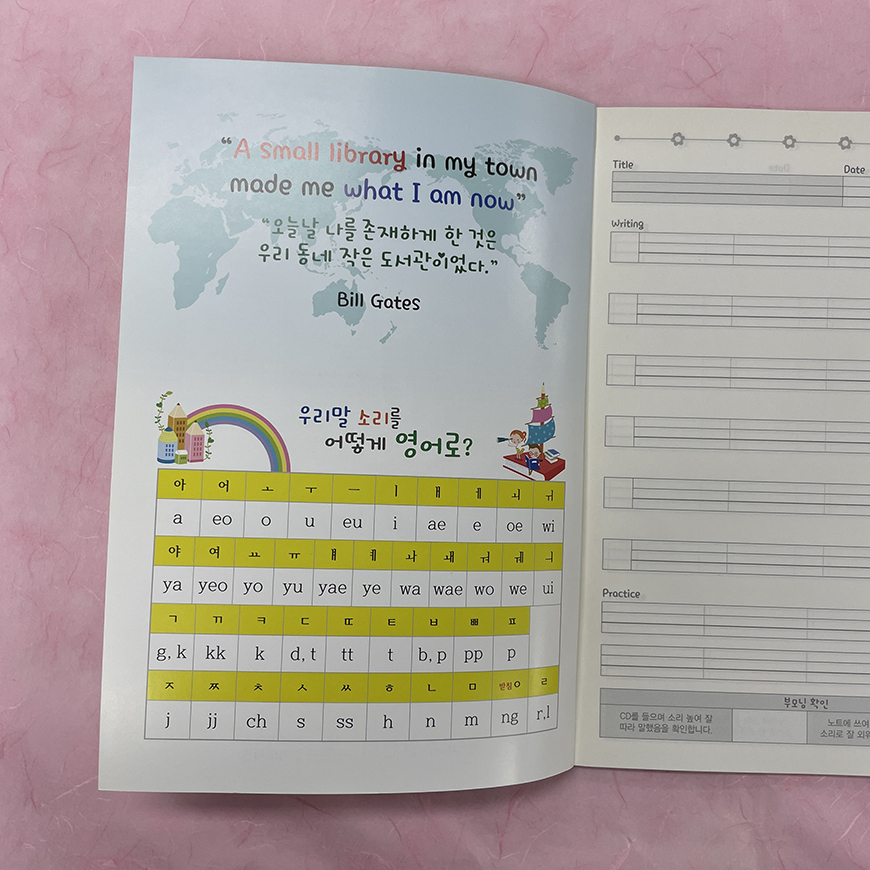 “A small library in my town
made me what I am now”
“오늘날 나를 존재하게 한 것은
우리 동네 작은 도서관이었다.”
Bill Gates
우리말 소리를
어떻게 영어로?
아 어 ㅗ ㅜ ㅡ ㅣ ㅐ ㅔ ㅚ ㅟ
a eo o u eu i ae e oe wi
야 여 ㅛ ㅠ ㅒ ㅖ ㅘ ㅙ ㅝ ㅞ ㅢ
ya yeo yo yu yae ye wa wae wo we ui
ㄱ ㄲ ㅋ ㄷ ㄸ ㅌ ㅂ ㅃ ㅍ
g, k kk k d, t tt t b, p pp p
ㅈ ㅉ ㅊ ㅅ ㅆ ㅎ ㄴ ㅁ 받침ㅇ ㄹ
j jj ch s ss h n m ng r, l
Title Date
Writing
Practice
부모님 확인
CD를 들으며 소리 높여 잘
따라 말했음을 확인합니다.
노트에 쓰여
소리로 잘 외워